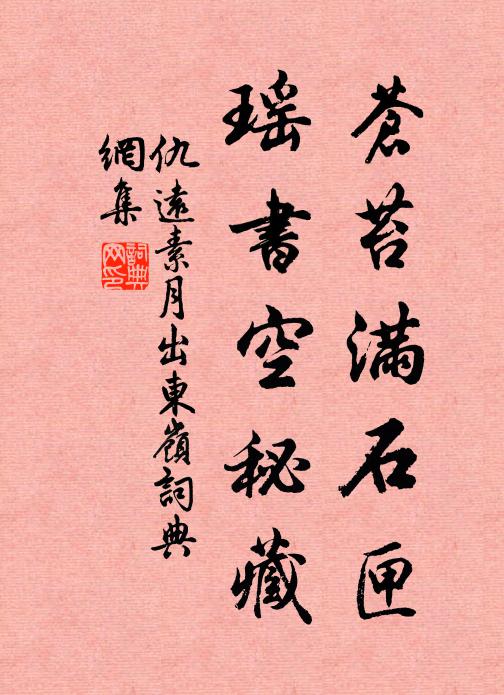 蒼苔滿石匣
瑶書空秘藏
仇遠素月出東嶺詞典
網集
詞典
网印